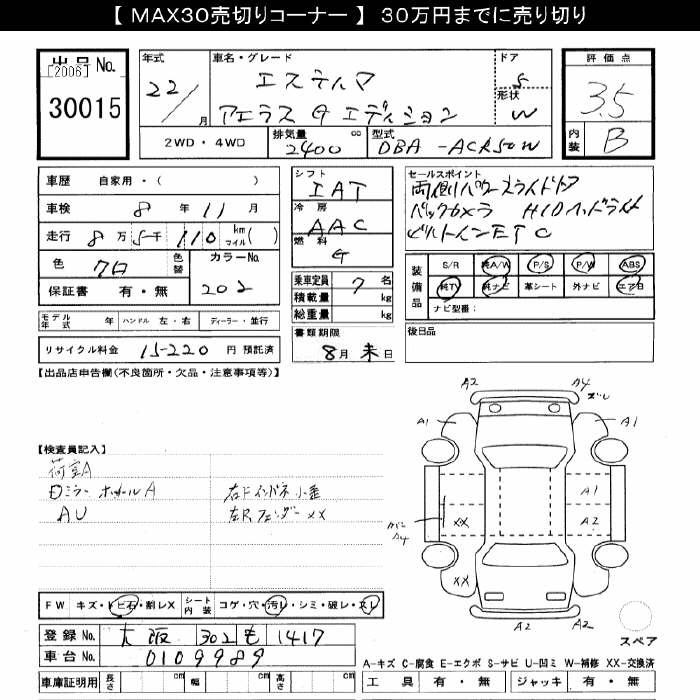 【 MAX30売切りコーナー 】 30万円までに売り切り
出品 No.
[2006]
30015
年式
22/
月
車名・グレード
エスティマ
アエラス G エディション
ドア
5
形状
W
評価点
3.5
内装
B
2WD・4WD
排気量
2400 cc
型式
DBA -ACR50W
車歴 自家用・( )
車検 8 年 11 月
走行 8 万 5 千 110 km マイル( )
色
クロ
色替
カラーNo.
202
保証書 有・無
シフト
IAT
冷房
AAC
燃料
G
乗車定員 7 名
積載量 kg
総重量 kg
書類期限
8月 末 日
セールスポイント
両側パワースライドドア
バックカメラ HIDヘッドライト
ビルトインETC
装備品
S/R 純A/W P/S P/W ABS
純TV 純ナビ 革シート 外ナビ エアB
ナビ型番:
後日品
モデル年式 年 ハンドル 左・右 ディーラー・並行
リサイクル料金 15-220 円 預託済
【出品店申告欄(不良箇所・欠品・注意事項等)】
【検査員記入】
荷室A
AU
右Fインパネ小歪
左Rフェンダー××
A2 A4
ズレ
A1 A1
A1
××
A2
A4
××
A2 A2
スペア
FW キズ・トビ石・割レX
シート内装 コゲ・穴・汚レ・シミ・破レ・スレ
登録 No. 大阪 302 も 1417
車台 No. 0109989
車庫証明用 長さ cm 幅 cm 高さ cm
A-キズ C-腐食 E-エクボ S-サビ U-凹ミ W-補修 XX-交換済
工具 有・無 ジャッキ 有・無